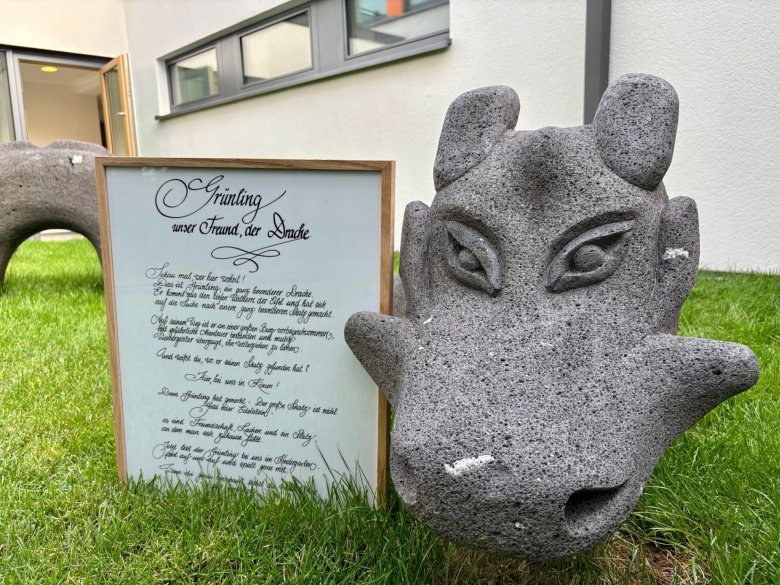 Grünling
unser Freund, der Drache
Schau mal, wer hier wohnt!
Das ist Grünling, ein ganz besonderer Drache.
Er kommt aus den tiefen Wäldern der Eifel und hat sich
auf die Suche nach einem ganz besonderen Schatz gemacht.
Auf seinem Weg ist er an einer großen Burg vorbeigekommen,
hat gefährliche Abenteuer bestanden und mutig
überzeugt, die
Und weißt du, wo er seinen Schatz gefunden hat?
Hier, bei uns in
Denn Grünling hat gemerkt: Der große Schatz ist nicht
Gold oder Edelsteine,
es sind Freundschaft, Lachen und ein Platz,
an dem man sich zuhause fühlt.
Jetzt lebt der Grünling bei uns im Kindergarten,
passt auf uns auf und spielt gerne mit